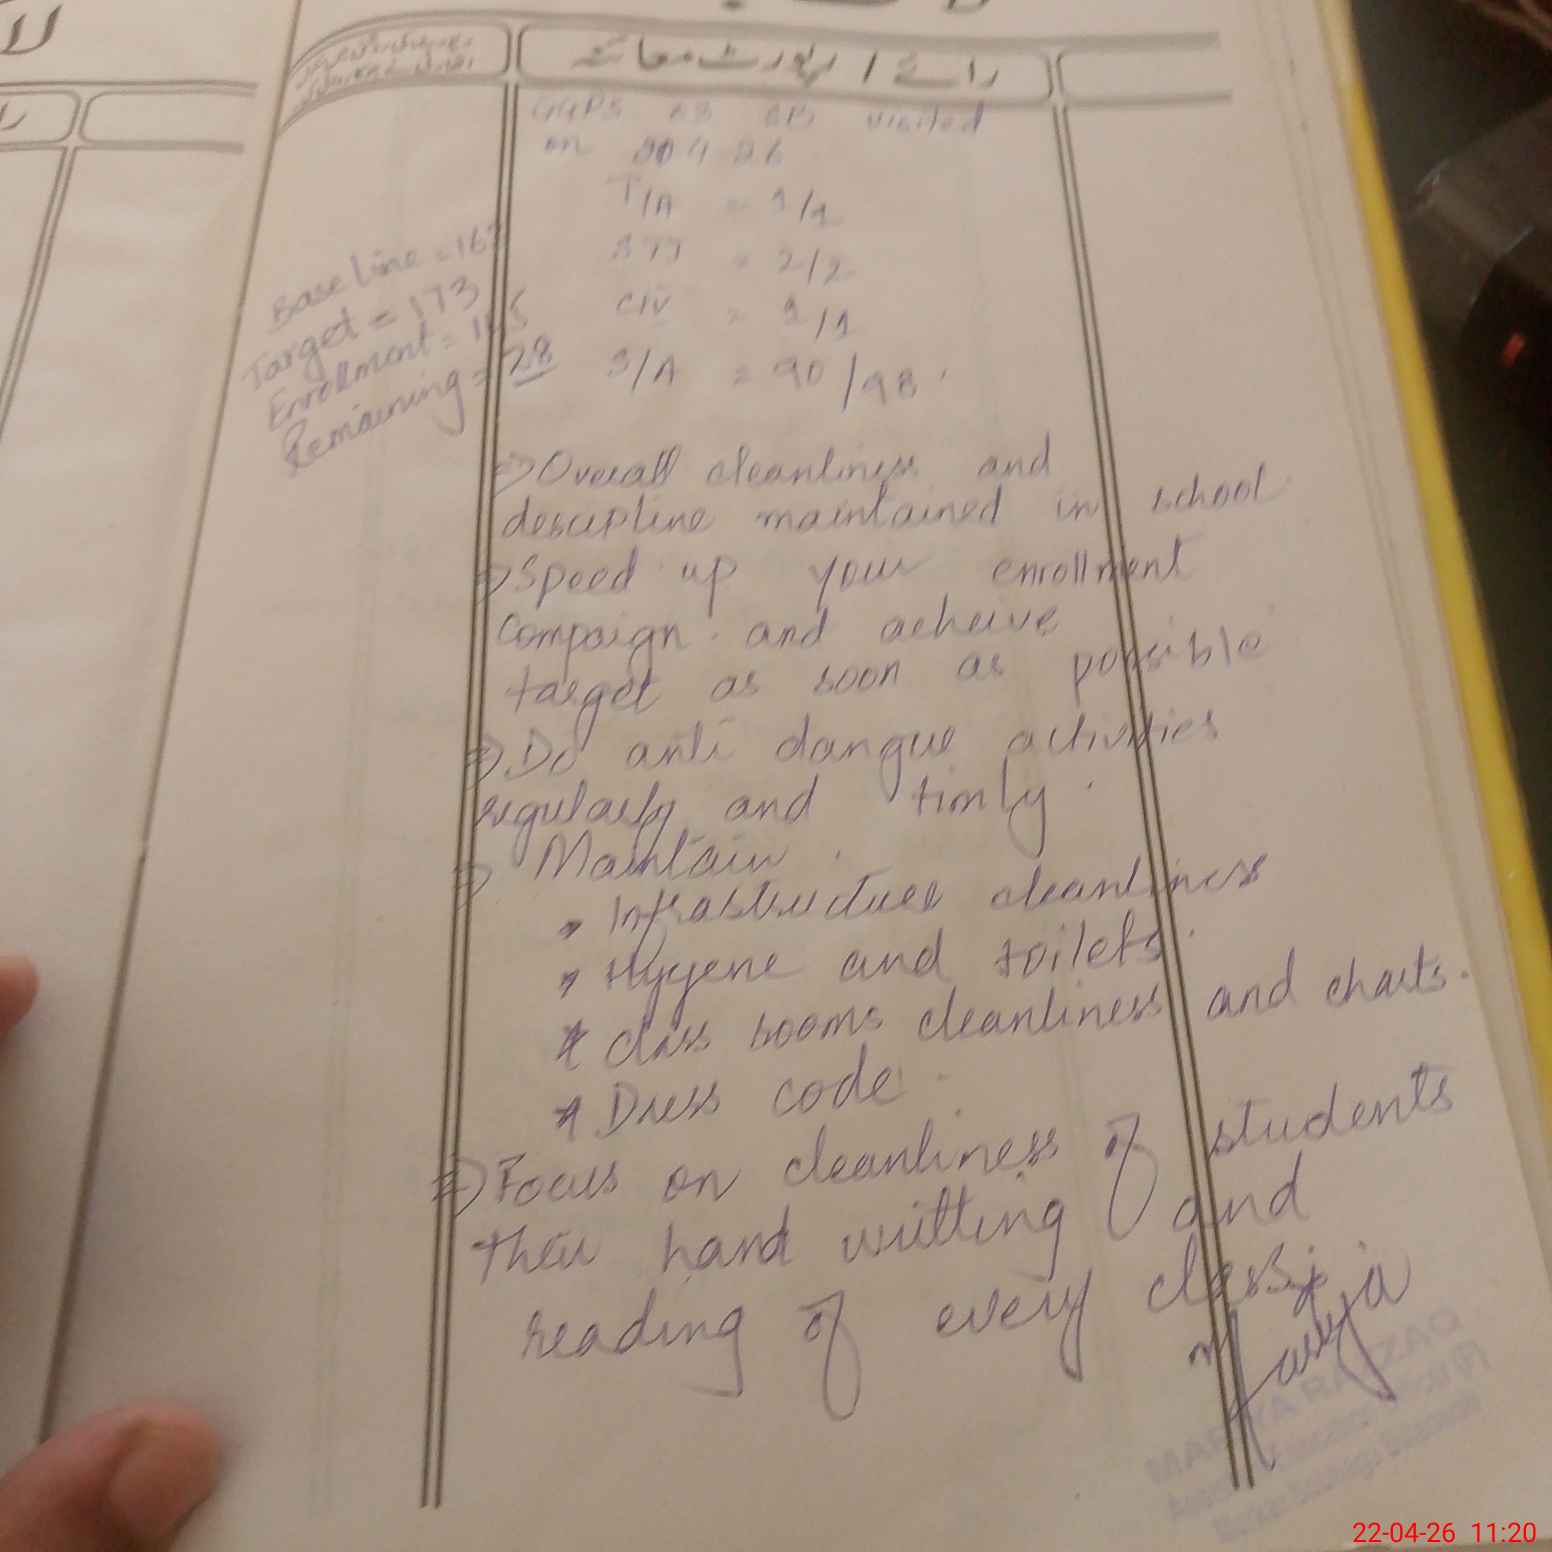 رائے / رپورٹ معائنہ
GGPS 23 SB visited
on 20 4 26
T/A = 1/1
STI = 2/2
C/V = 1/1
S/A = 90/98
Base line = 163
Target = 173
Enrollment =
Remaining = 28
=> Overall cleanliness and
descipline maintained in school
=> Speed up your enrollment
Compaign and acheive
target as soon as possible
=> Do anti dangue activities
regularly and timly
=> Maintain
* Infrastructure cleanliness
* Hygene and toilets.
* Class rooms cleanliness and charts.
* Dress code
=> Focus on cleanliness of students
their hand writting and
reading of every class.
22-04-26 11:20